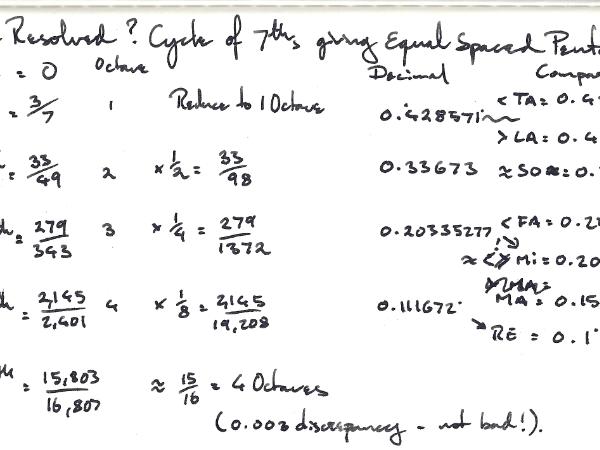 Resolved ? Cycle of 7ths giving Equal Spaced Pent
= 0 Octave Decimal Compa
= 3/7 1 Reduce to 1 Octave 0.428571 < TA = 0.4
> LA = 0.4
= 33/49 2 × 1/2 = 33/98 0.33673 ≈ SO = 0.
= 279/343 3 × 1/4 = 279/1372 0.20335277 < FA = 0.2
≈ <> Mi = 0.20
MA = 0.15
= 2,145/2,401 4 × 1/8 = 2,145/19,208 0.111672
RE = 0.1
= 15,803/16,807 ≈ 15/16 = 4 Octaves
(0.003 discrepancy - not bad!).